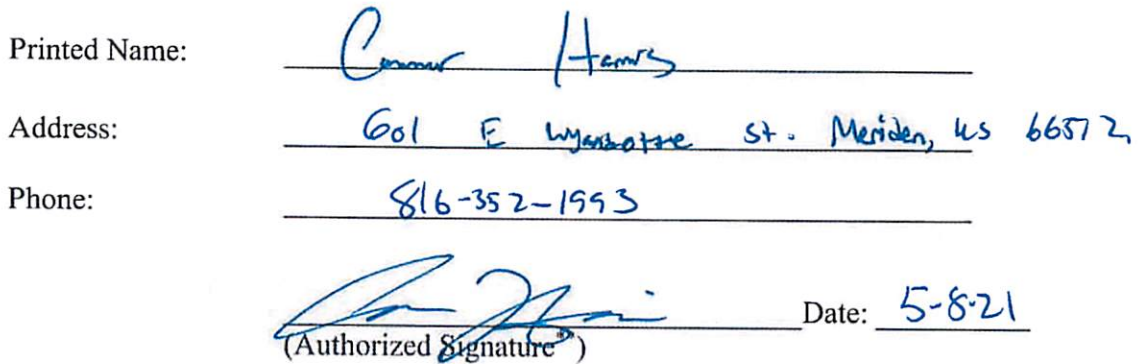 Printed Name: Connor Harris
Address: 601 E Wyandotte St. Meriden, KS 66512
Phone: 816-352-1993
Date: 5-8-21
(Authorized Signature**)